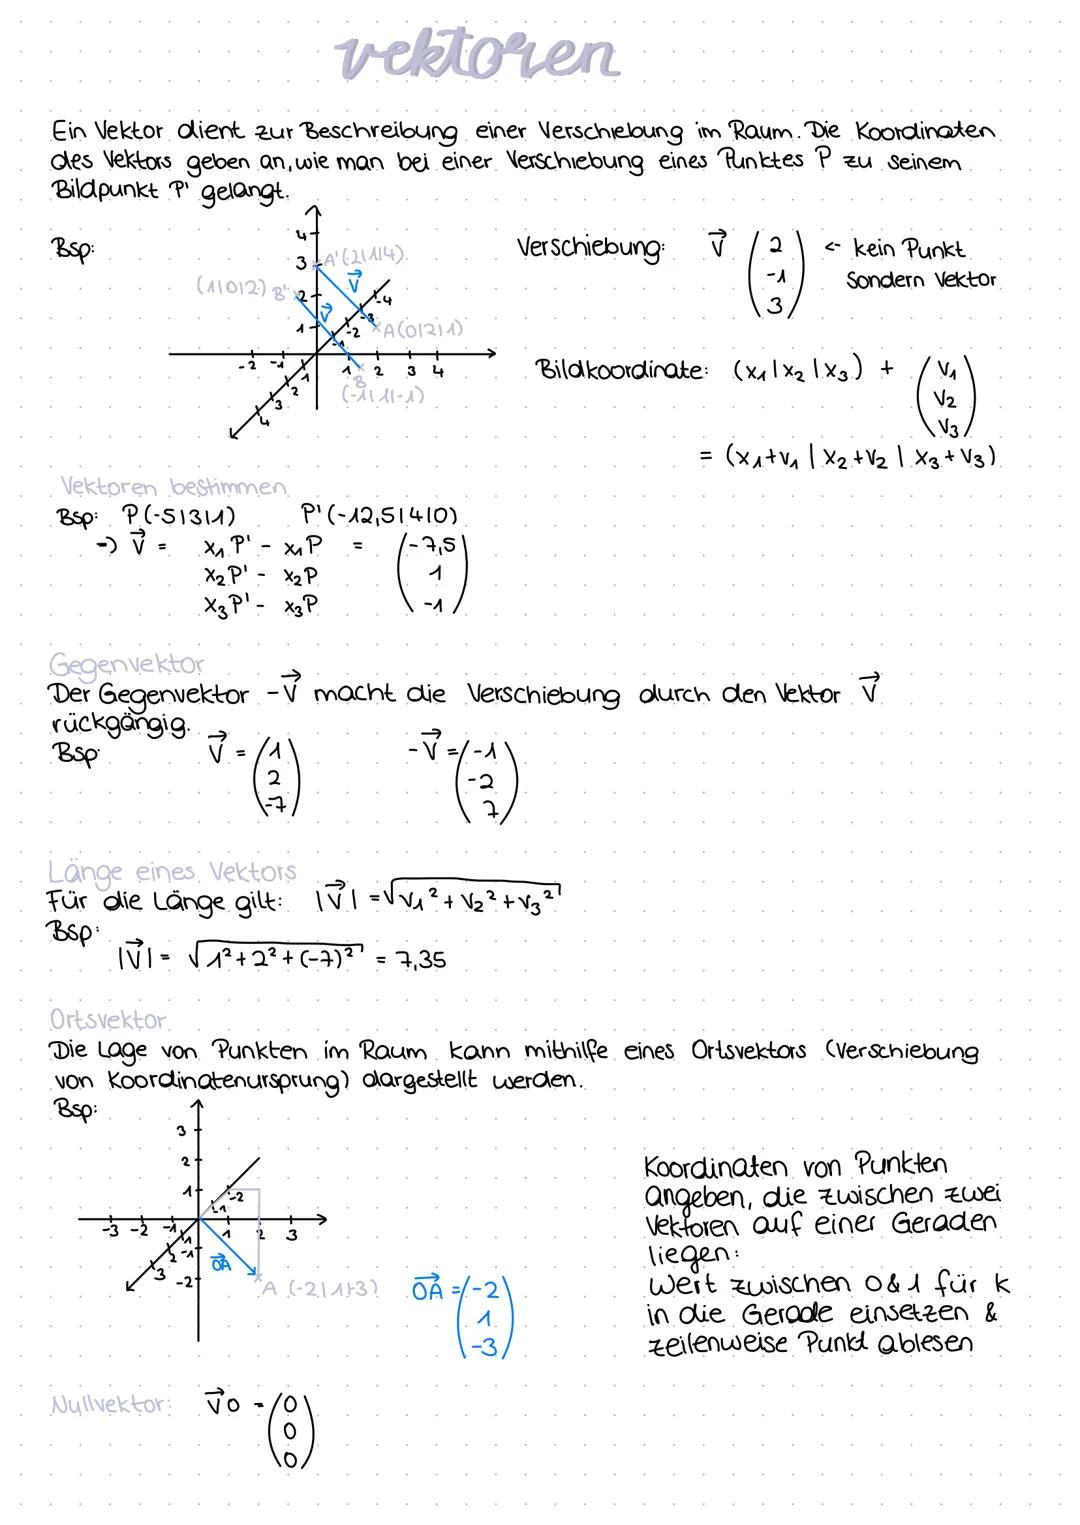 vektoren
Ein Vektor dient zur Beschreibung einer Verschiebung im Raum. Die Koordinaten
des Vektors geben an, wie man bei einer Verschiebung eines Punktes P zu seinem
Bildpunkt P' gelangt.
Bsp:
4
3 A'(2|1|4)
(1|0|2) B' 2
v⃗ v⃗
1
-4
-3
-2
-1
A(0|2|1)
-2 -1 1 2 3 4
1
2
3
4
B
(-1|1|-1)
Verschiebung: v⃗ ( 2 ) <- kein Punkt
-1 sondern Vektor
3
Bildkoordinate: (x₁|x₂|x₃) + ( v₁
v₂
v₃ )
= (x₁+v₁ | x₂+v₂ | x₃+v₃)
Vektoren bestimmen
Bsp: P(-5|3|1) P'(-12,5|4|0)
-) v⃗ = x₁P' - x₁P = ( -7,5
x₂P' - x₂P 1
x₃P' - x₃P -1 )
Gegenvektor
Der Gegenvektor -v⃗ macht die Verschiebung durch den Vektor v⃗
rückgängig.
Bsp: v⃗ = ( 1 -v⃗ = ( -1
2 -2
-7 ) 7 )
Länge eines Vektors
Für die Länge gilt: |v⃗| = √v₁² + v₂² + v₃²
Bsp:
|v⃗| = √1² + 2² + (-7)² = 7,35
Ortsvektor
Die Lage von Punkten im Raum kann mithilfe eines Ortsvektors (Verschiebung
von Koordinatenursprung) dargestellt werden.
Bsp:
3
2
1
-2
-1
-3 -2 -1 1 2 3
1
2
3
-1
-2
OA⃗
A (-2|1|-3)
OA⃗ = ( -2
1
-3 )
Koordinaten von Punkten
angeben, die zwischen zwei
Vektoren auf einer Geraden
liegen:
Wert zwischen 0 & 1 für k
in die Gerade einsetzen &
zeilenweise Punkt ablesen
Nullvektor: v⃗0 = ( 0
0
0 )